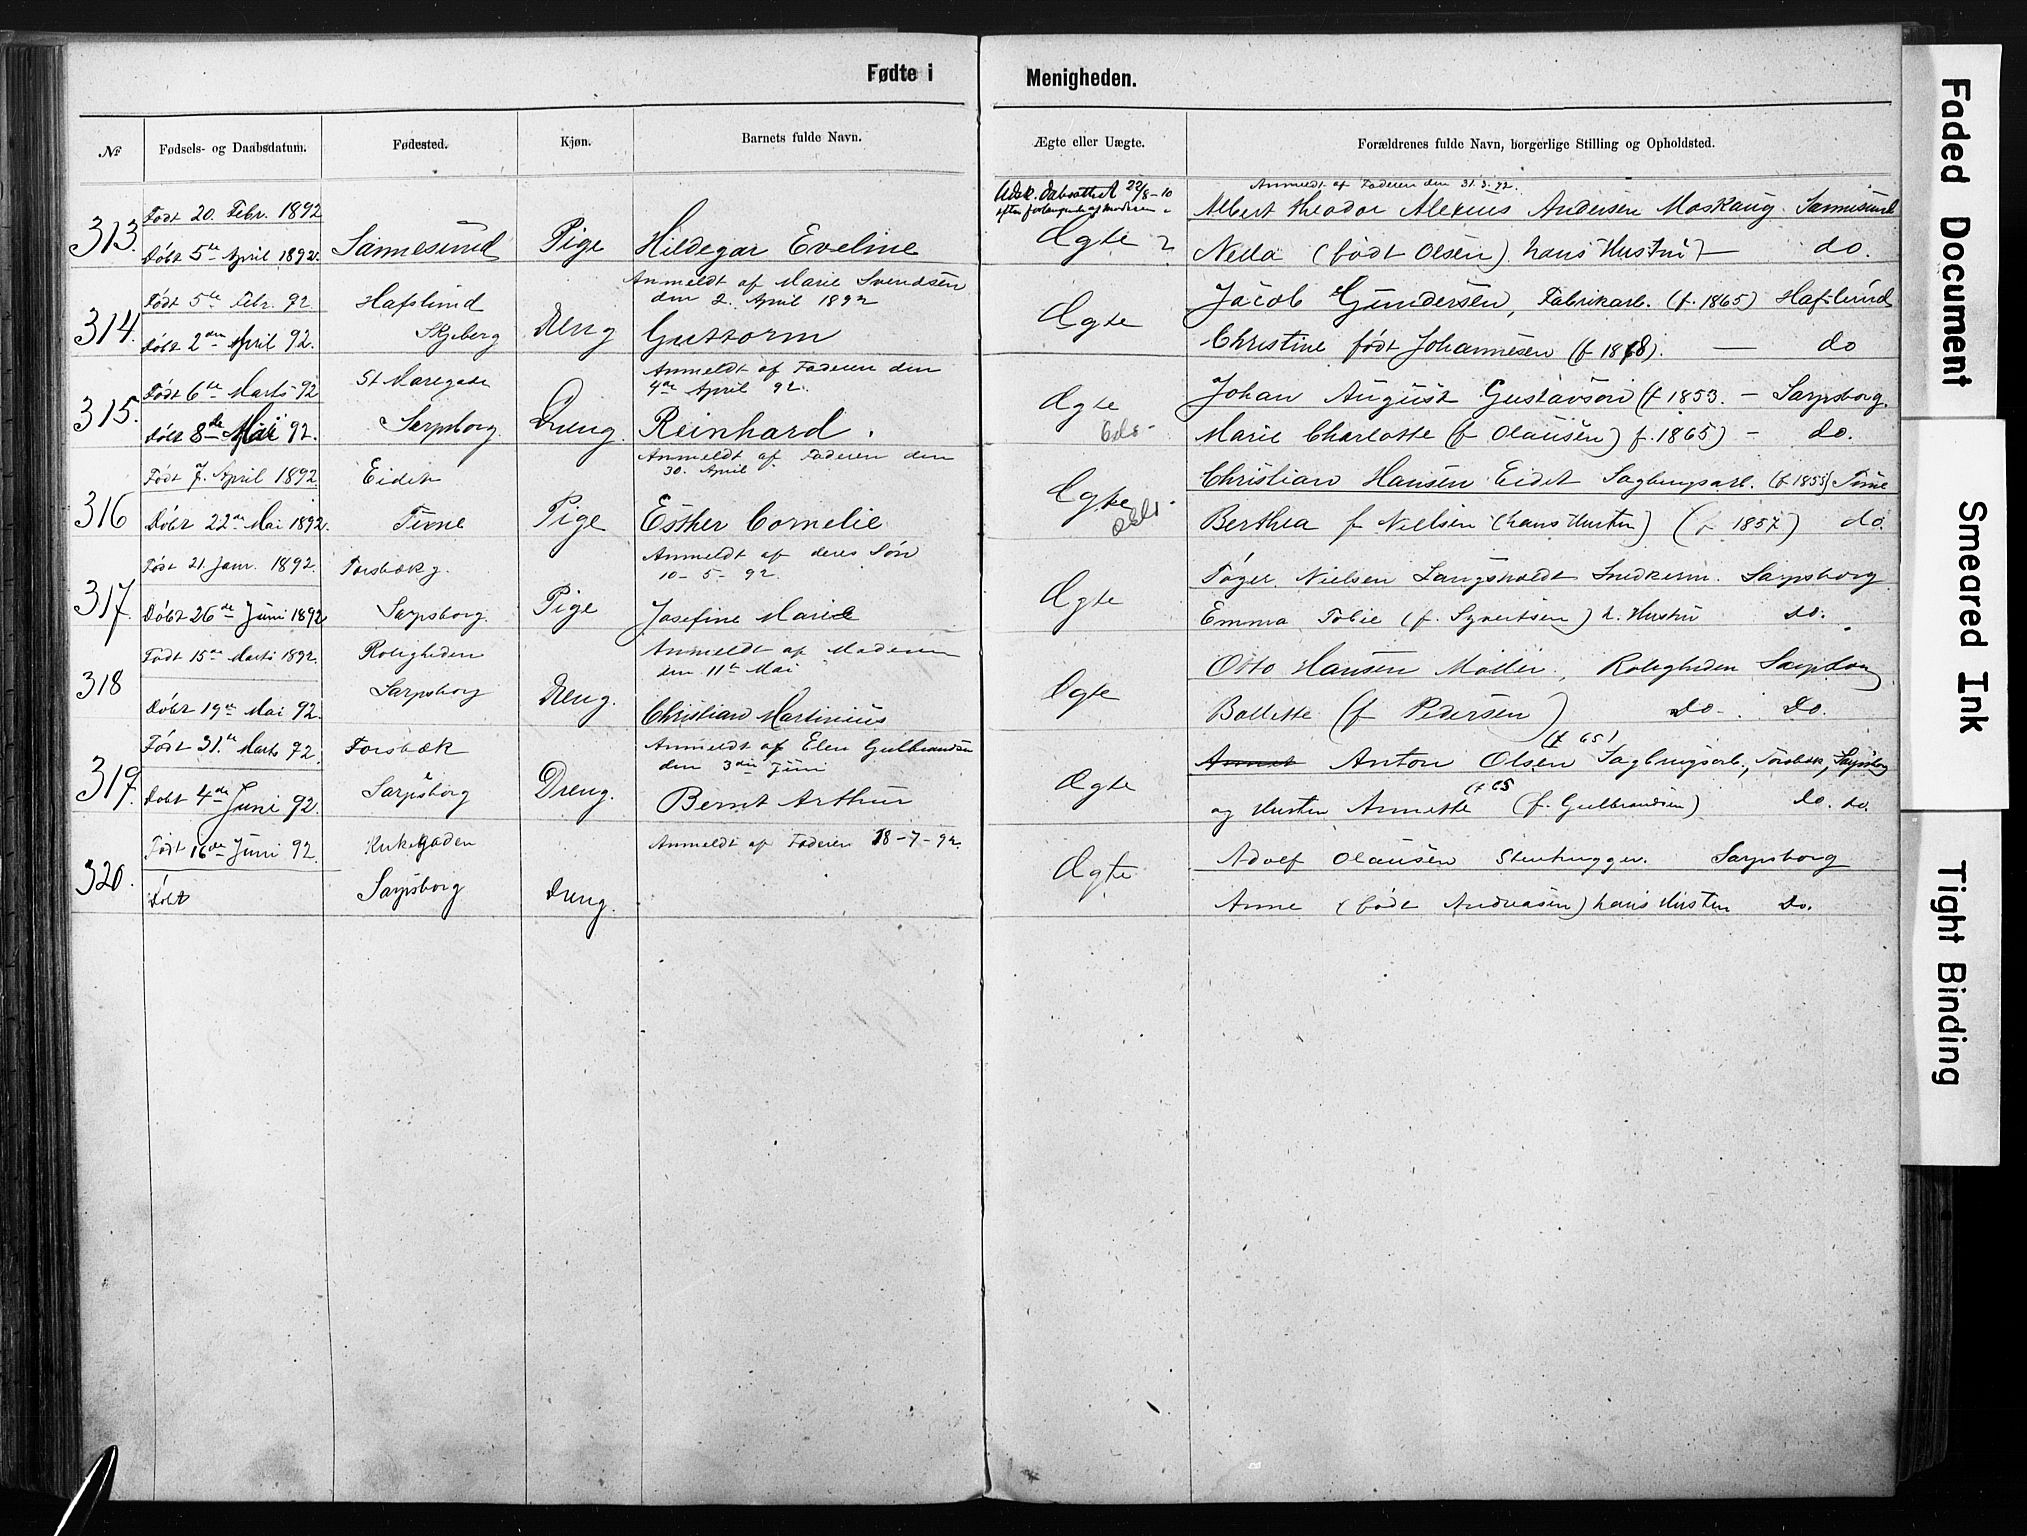 Fødte i Menigheden.
№ Fødsels- og Daabsdatum. Fødested. Kjøn. Barnets fulde Navn. Ægte eller Uægte. Forældrenes fulde Navn, borgerlige Stilling og Opholdsted.
Anmeldt af Faderen den 31.3.92.
Udsk. Dabsattest 22/8-10
efter forlangende af Moderen
313. Født 20. Febr. 1892 Albert Theodor Alexius Andersen Moskaug. Sannesund
Døbt 5te April 1892. Sannesund Pige Hildegar Eveline Ægte Nella (født Olsen) hans Hustru do.
Anmeldt af Marie Svendsen
den 2. April 1892
314. Født 5te Febr. 92. Hafslund Jacob Gundersen, Fabrikarb. (f. 1865) Hafslund
Døbt 2den April 92. Skjeberg Dreng Guttorm Ægte Christine født Johannesen (f 1868). — do
Anmeldt af Faderen den
4de April 92.
315. Født 6te Marts 92 St Mariegade Johan August Gustavson (f 1853. — Sarpsborg.
Døbt 8de Mai 92. Sarpsborg. Dreng. Reinhard. Ægte Marie Charlotte (f Olausen) f. 1865) — do.
Anmeldt af Faderen den
30. April
316 Født 7. April 1892. Eidet Christian Hansen Eidet Sagbrugsarb. (f 1855) Tune
Døbt 22de Mai 1892. Tune Pige Esther Cornelie Ægte Berthea f Nielsen (hans Hustru) (f 1857) do.
Anmeldt af deres Søn
10-5-92.
317. Født 21. Janr. 1892. Forsbækg. Tøger Nielsen Langsholdt Snedkerm. Sarpsborg
Døbt 26de Juni 1892 Sarpsborg. Pige Josefine Marie Ægte Emma Tobie (f. Syvertsen) h. Hustru do.
Anmeldt af Moderen
den 11te Mai
318 Født 15de Marts 1892. Roligheden Otto Hansen Møller, Roligheden Sarpsborg
Døbt 19de Mai 92. Sarpsborg Dreng. Christian Martinius Ægte Bollette (f Pedersen) Do. Do.
Anmeldt af Elen Gulbrandsen
den 3die Juni
(f 65)
319. Født 31te Marts 92. Forsbæk Anton Olsen Sagbrugsarb., Forsbæk, Sarpsborg
(f 65
Døbt 4de Juni 92. Sarpsborg Dreng. Bernt Arthur Ægte og Hustru Annette (f. Gulbrandsen) Do. do.
320. Født 16de Juni 92. Kirkegaden Anmeldt af Faderen 18-7-92. Adolf Olausen Stenhugger. Sarpsborg
Døbt Sarpsborg Dreng. Ægte Anne (født Andreasen) hans Hustru Do.
Faded Document
Smeared Ink
Tight Binding